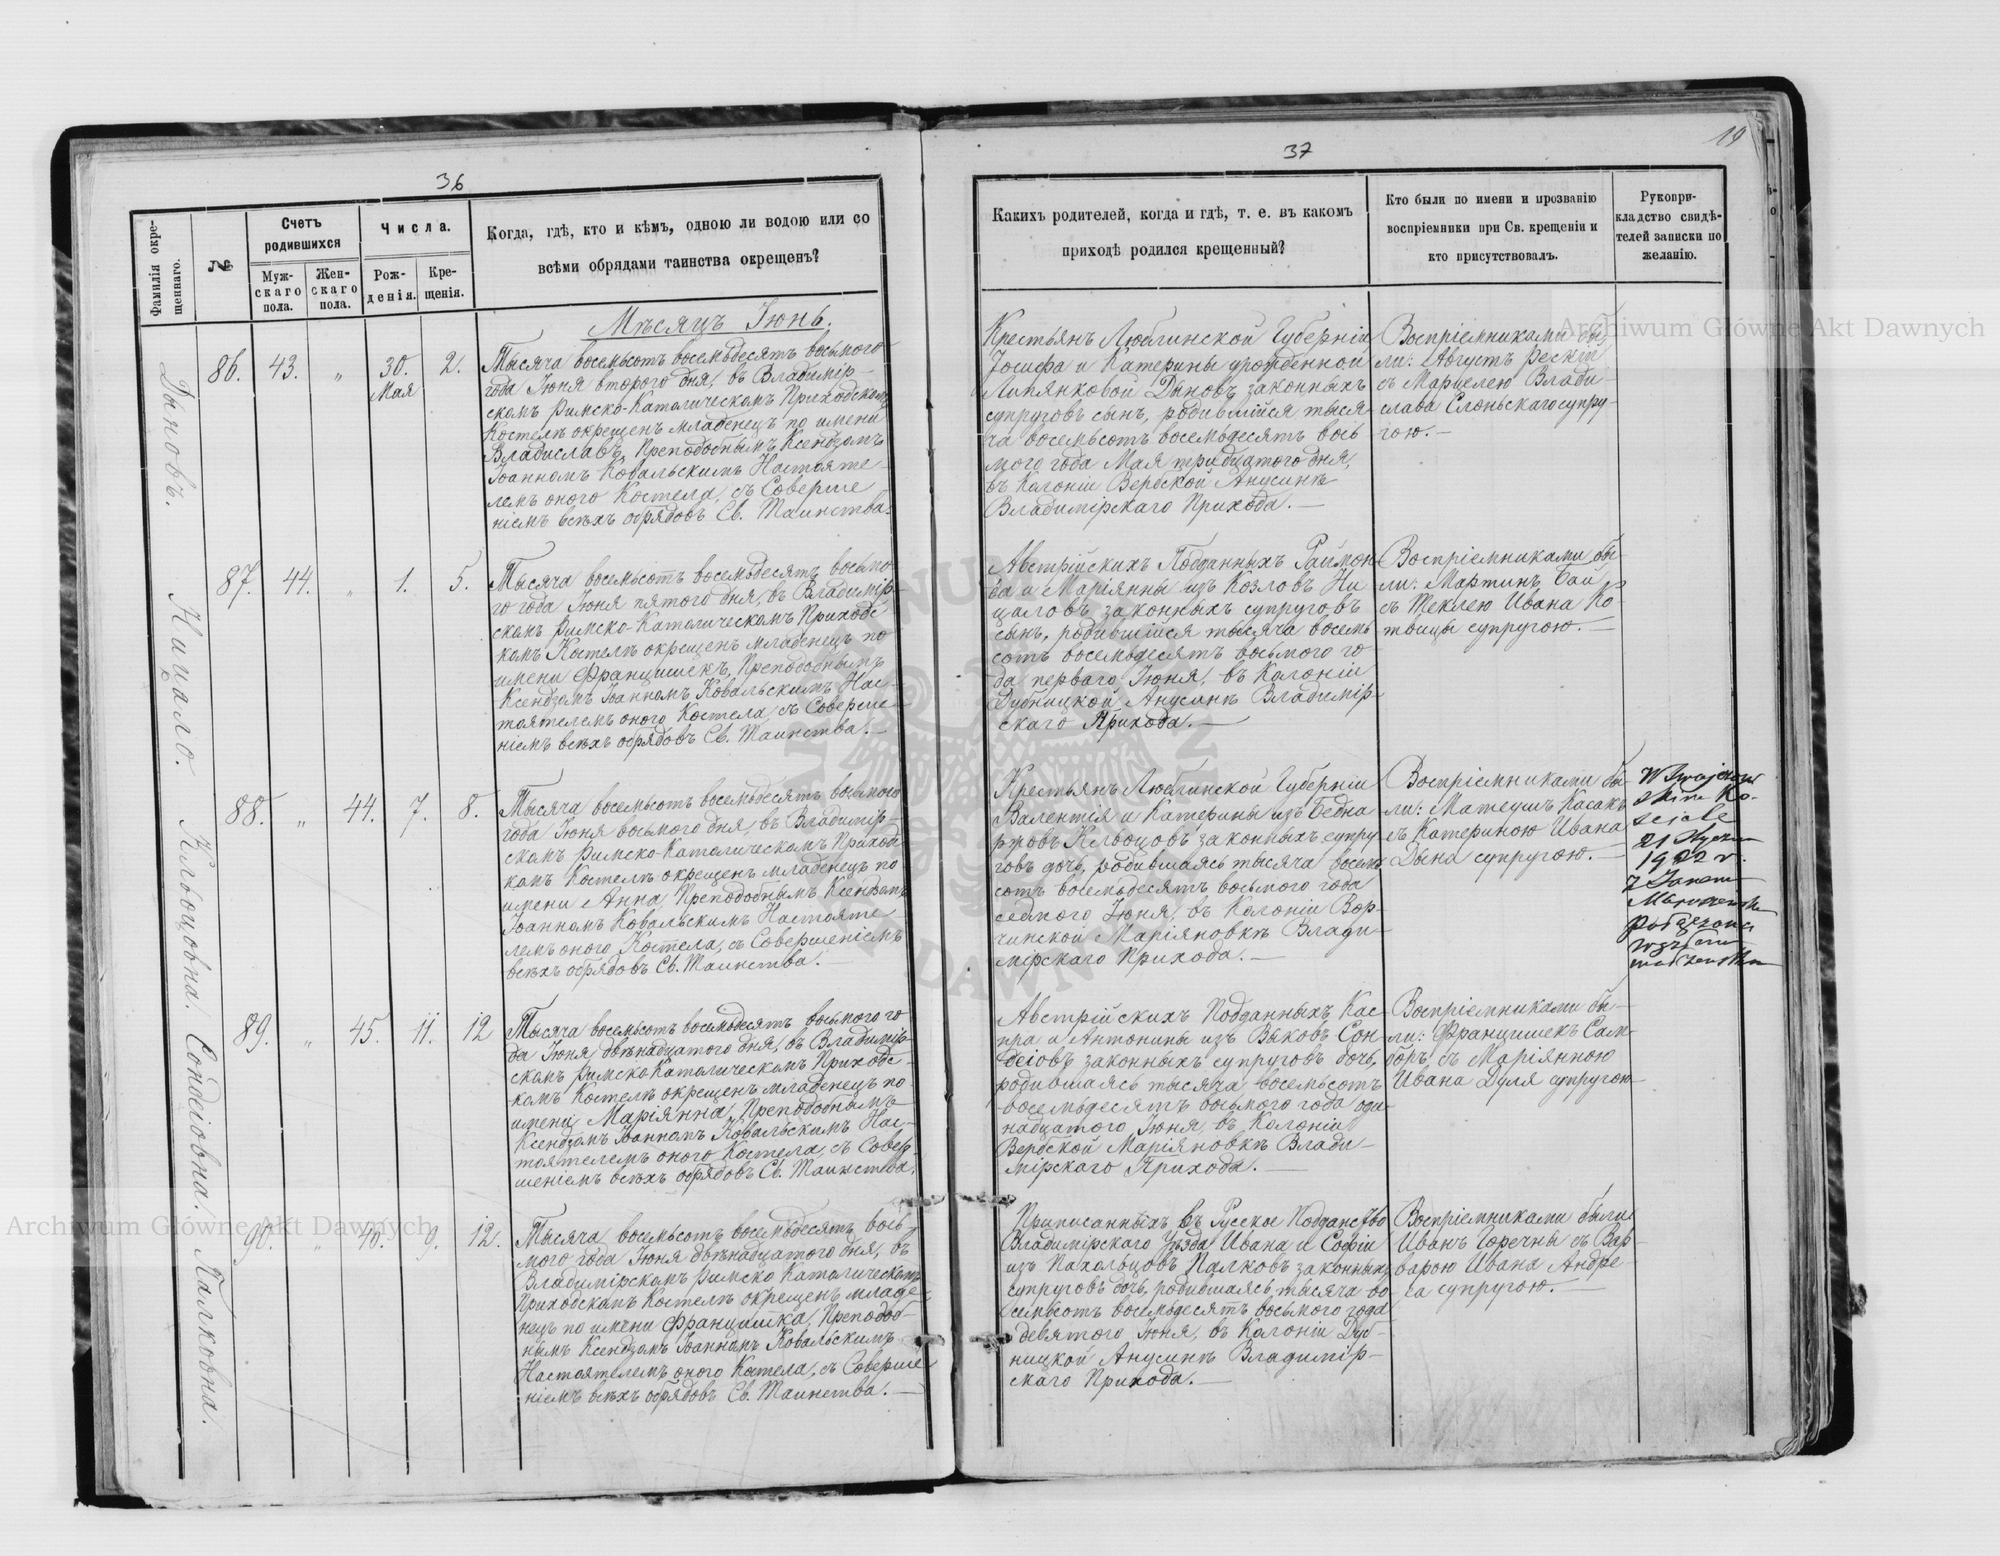 36
Фамилія окрещеннаго.
№
Счетъ родившихся
Мужскаго пола.
Женскаго пола.
Числа.
Рожденія.
Крещенія.
Когда, гдѣ, кто и кѣмъ, одною ли водою или со
всѣми обрядами таинства окрещенъ?
Мѣсяцъ Іюнь.
Дыновъ.
86. 43. „ 30. Мая 2.
Тысяча восемьсотъ восемьдесятъ восьмого
года Іюня второго дня, въ Владимір-
скомъ Римско-Католическомъ Приходскомъ
Костелѣ окрещенъ младенецъ по имени
Владиславъ, Преподобнымъ Ксендзомъ
Іоанномъ Ковальскимъ Настояте-
лемъ оного Костела, съ Соверше
ніемъ всѣхъ обрядовъ Св. Таинства.
Ницало.
87. 44. „ 1. 5.
Тысяча восемьсотъ восемьдесятъ восьмо
го года Іюня пятого дня, въ Владимір-
скомъ Римско-Католическомъ Приходс
комъ Костелѣ окрещенъ младенецъ по
имени Францишекъ, Преподобнымъ
Ксендзомъ Іоанномъ Ковальскимъ Нас-
тоятелемъ оного Костела, съ Соверше-
ніемъ всѣхъ обрядовъ Св. Таинства.—
Кльоцовна.
88. „ 44. 7. 8.
Тысяча восемьсотъ восемьдесятъ восьмого
года Іюня восьмого дня, въ Владимір-
скомъ Римско-Католическомъ Приходс
комъ Костелѣ окрещенъ младенецъ по
имени Анна, Преподобнымъ Ксендзомъ
Іоанномъ Ковальскимъ Настояте-
лемъ оного Костела, съ Совершеніемъ
всѣхъ обрядовъ Св. Таинства.—
Сондеіовна.
89. „ 45. 11. 12
Тысяча восемьсотъ восемьдесятъ восьмого го
да Іюня двѣнадцатого дня, въ Владимір-
скомъ Римско-Католическомъ Приходс-
комъ Костелѣ окрещенъ младенецъ по
имени Маріянна, Преподобнымъ
Ксендзомъ Іоанномъ Ковальскимъ Нас-
тоятелемъ оного Костела, съ Совер-
шеніемъ всѣхъ обрядовъ Св. Таинства.
Палковна.
90. „ 46. 9. 12.
Тысяча восемьсотъ восемьдесятъ вось-
мого года Іюня двѣнадцатого дня, въ
Владимірскомъ Римско Католическомъ
Приходскомъ Костелѣ окрещенъ младе-
нецъ по имени Францишка, Преподоб-
нымъ Ксендзомъ Іоанномъ Ковальскимъ
Настоятелемъ оного Костела, съ Соверше
ніемъ всѣхъ обрядовъ Св. Таинства.—
37
19
Какихъ родителей, когда и гдѣ, т. е. въ какомъ
приходѣ родился крещенный?
Кто были по имени и прозванію
воспріемники при Св. крещеніи и
кто присутствовалъ.
Рукопри-
кладство свидѣ-
телей записки по
желанію.
Крестьянъ Люблинской Губерніи
Іосифа и Катерины урожденной
Дыновъ законныхъ
супруговъ сынъ, родившійся тыся
ча восемьсотъ восемьдесятъ вось
мого года Мая тридцатого дня,
въ Колоніи Вербской Анусинѣ
Владимірскаго Прихода.—
Воспріемниками бы-
ли: Августъ Рескій
съ Марцелею Влади-
слава Слоньскаго супру-
гою.—
Австрійскихъ Подданныхъ Раймон
да и Маріянны изъ Козловъ Ни
цаловъ законныхъ супруговъ
сынъ, родившійся тысяча восемь
сотъ восемьдесятъ восьмого го
да перваго Іюня, въ Колоніи
Дубницкой Анусинѣ Владимір-
скаго Прихода.—
Воспріемниками бы-
ли: Мартинъ Бай
съ Теклею Ивана Ко-
твицы супругою.—
Крестьянъ Люблинской Губерніи
Валентія и Катерины изъ Бедна
ржовъ Кльоцовъ законныхъ супру
говъ дочь, родившаясь тысяча восемь
сотъ восемьдесятъ восьмого года
седмого Іюня, въ Колоніи Вор-
чинской Маріяновкѣ Влади-
мірскаго Прихода.—
Воспріемниками бы-
ли: Матеушъ Касакъ
съ Катериною Ивана
Дына супругою.—
W
skim Ko-
ściele
21
1922 r.
z Janem
połączona
węzłem
małżeńskim
Австрійскихъ Подданныхъ Кас-
пра и Антонины изъ Выковъ Сон-
деіовъ законныхъ супруговъ дочь,
родившаясь тысяча восемьсотъ
восемьдесятъ восьмого года оди-
надцатого Іюня, въ Колоніи
Вербской Маріяновкѣ Влади-
мірскаго Прихода.—
Воспріемниками бы-
ли: Францишекъ Сам-
боръ съ Маріянною
Ивана Дуля супругою—
Приписанныхъ въ Русское Подданство
Владимірскаго Уѣзда Ивана и Софіи
изъ Пахольцовъ Палковъ законныхъ
супруговъ дочь, родившаясь тысяча во
семьсотъ восемьдесятъ восьмого года
девятого Іюня, въ Колоніи Дуб-
ницкой Анусинѣ Владимір-
скаго Прихода.—
Воспріемниками были
Иванъ Горечны съ Вар-
варою Ивана Андре-
са супругою.—
Archiwum Główne Akt Dawnych
Archiwum Główne Akt Dawnych